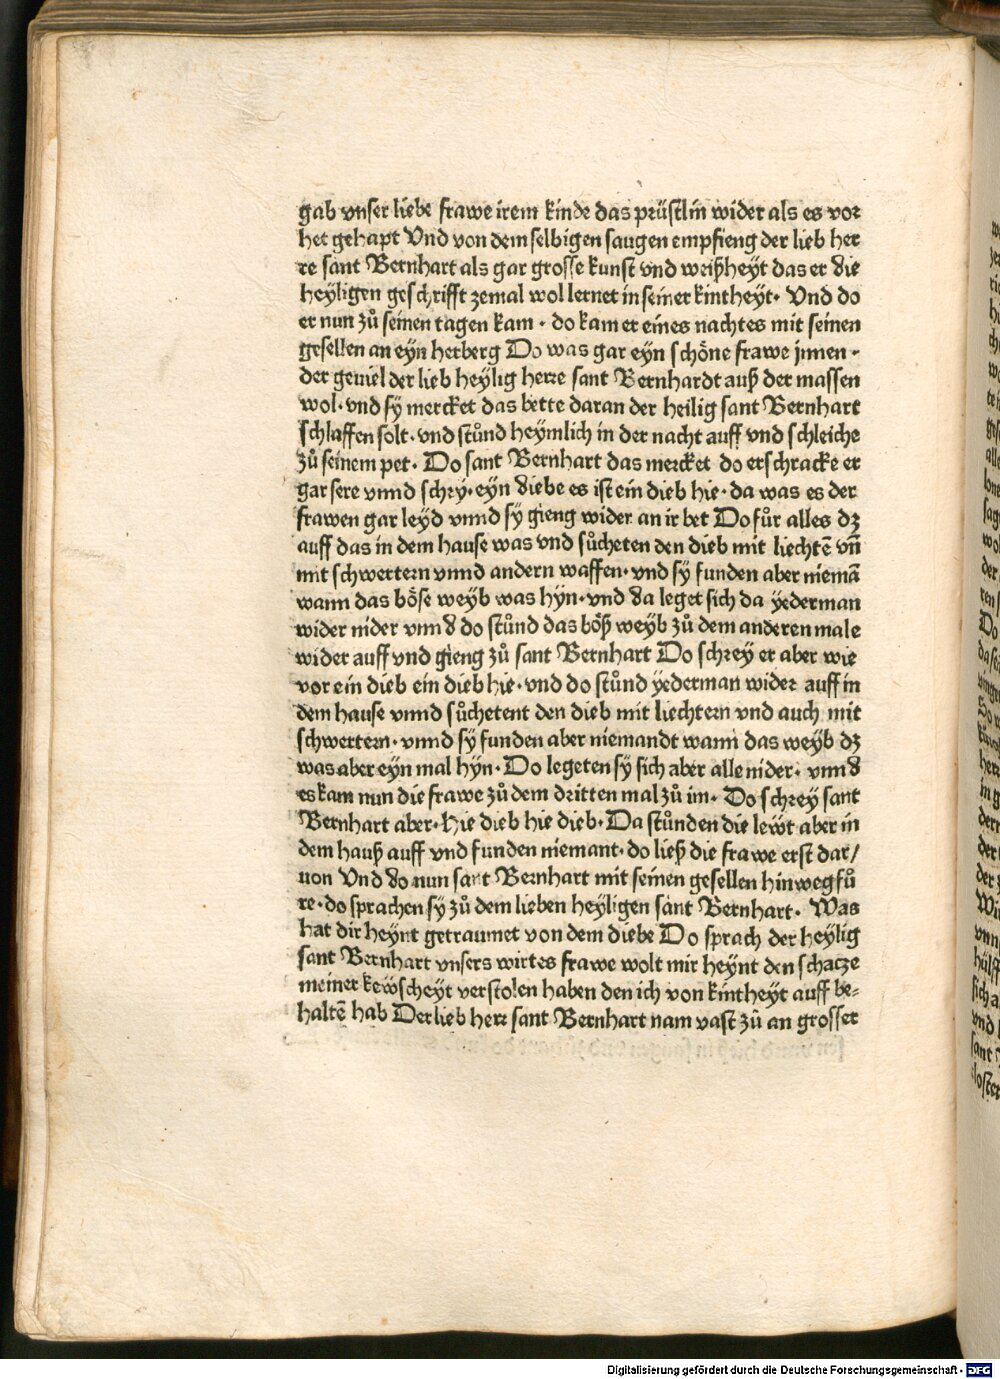 gab vnser liebe frawe irem kinde das prüstlin wider als es vor
het gehapt Vnd von dem selbigen saugen empfieng der lieb her
re sant Bernhart als gar grosse kunst vnd weißheyt das er die
heyligen geschrifft zemal wol lernet in seiner kintheyt· Vnd do
er nun zů seinen tagen kam · do kam er eines nachtes mit seinen
gesellen an eyn herberg Do was gar eyn schöne frawe jnnen ·
der geuiel der lieb heylig herre sant Bernhardt auß der massen
wol· vnd sÿ mercket das bette daran der heilig sant Bernhart
schlaffen solt· vnd stůnd heymlich in der nacht auff vnd schleiche
zů seinem pet· Do sant Bernhart das mercket do erschracke er
gar sere vnnd schrÿ· eyn diebe es ist ein dieb hie· da was es der
frawen gar leyd vnnd sÿ gieng wider an ir bet Do fůr alles dz
auff das in dem hause was vnd sůcheten den dieb mit liechtē vn̄
mit schwertern vnnd andern waffen· vnd sÿ funden aber niemā
wann das böse weyb was hÿn· vnd da leget sich da ÿederman
wider nider vnnd do stůnd das böß weyb zů dem anderen male
wider auff vnd gieng zů sant Bernhart Do schrey er aber wie
vor ein dieb ein dieb hie· vnd do stůnd ÿederman wider auff in
dem hause vnnd sůchetent den dieb mit liechtern vnd auch mit
schwertern· vnnd sÿ funden aber niemandt wann das weyb dz
was aber eyn mal hÿn· Do legeten sÿ sich aber alle nider· vnnd
es kam nun die frawe zů dem dritten mal zů im· Do schrey sant
Bernhart aber· Hie dieb hie dieb· Da stůnden die lewt aber in
dem hauß auff vnd funden niemant· do ließ die frawe erst dar/
uon Vnd do nun sant Bernhart mit seinen gesellen hinweg fů
re· do sprachen sÿ zů dem lieben heyligen sant Bernhart· Was
hat dir heynt getraumet von dem diebe Do sprach der heylig
sant Bernhart vnsers wirtes frawe wolt mir heynt den schatze
meiner kewscheyt verstolen haben den ich von kintheyt auff be-
haltē hab Der lieb herr sant Bernhart nam vast zů an grosser
Digitalisierung gefördert durch die Deutsche Forschungsgemeinschaft - DFG